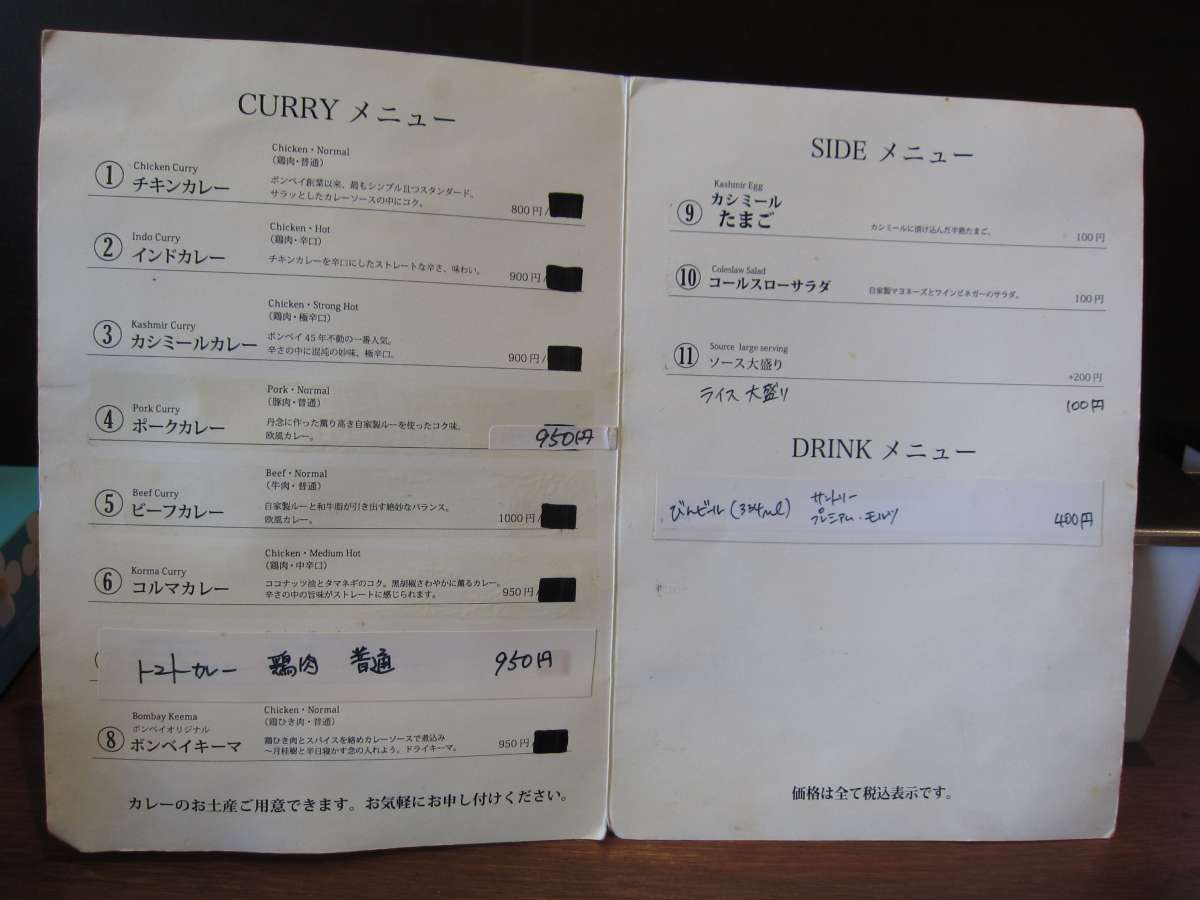 CURRY メニュー
Chicken・Normal
(鶏肉・普通)
① Chicken Curry
チキンカレー
ボンベイ創業以来、最もシンプル且つスタンダード。
サラッとしたカレーソースの中にコク。
800円/
Chicken・Hot
(鶏肉・辛口)
② Indo Curry
インドカレー
チキンカレーを辛口にしたストレートな辛さ、味わい。
900円/
Chicken・Strong Hot
(鶏肉・極辛口)
③ Kashmir Curry
カシミールカレー
ボンベイ45年不動の一番人気。
辛さの中に混沌の妙味、極辛口。
900円/
Pork・Normal
(豚肉・普通)
④ Pork Curry
ポークカレー
丹念に作った薫り高き自家製ルーを使ったコク味。
欧風カレー。
950円
Beef・Normal
(牛肉・普通)
⑤ Beef Curry
ビーフカレー
自家製ルーと和牛脂が引き出す絶妙なバランス。
欧風カレー。
1000円/
Chicken・Medium Hot
(鶏肉・中辛口)
⑥ Korma Curry
コルマカレー
ココナッツ油とタマネギのコク。黒胡椒さわやかに薫るカレー。
辛さの中の旨味がストレートに感じられます。
950円/
トマトカレー 鶏肉 普通 950円
Chicken・Normal
(鶏ひき肉・普通)
⑧ Bombay Keema
ボンベイオリジナル
ボンベイキーマ
鶏ひき肉とスパイスを絡めカレーソースで煮込み
～月桂樹と半日寝かす念の入れよう。ドライキーマ。
950円/
カレーのお土産ご用意できます。お気軽にお申し付けください。
SIDE メニュー
⑨ Kashmir Egg
カシミール
たまご
カシミールに漬け込んだ半熟たまご。
100円
⑩ Coleslaw Salad
コールスローサラダ
自家製マヨネーズとワインビネガーのサラダ。
100円
⑪ Source large serving
ソース大盛り
+200円
ライス大盛り 100円
DRINK メニュー
びんビール(334ml) サントリー
プレミアム・モルツ
400円
価格は全て税込表示です。